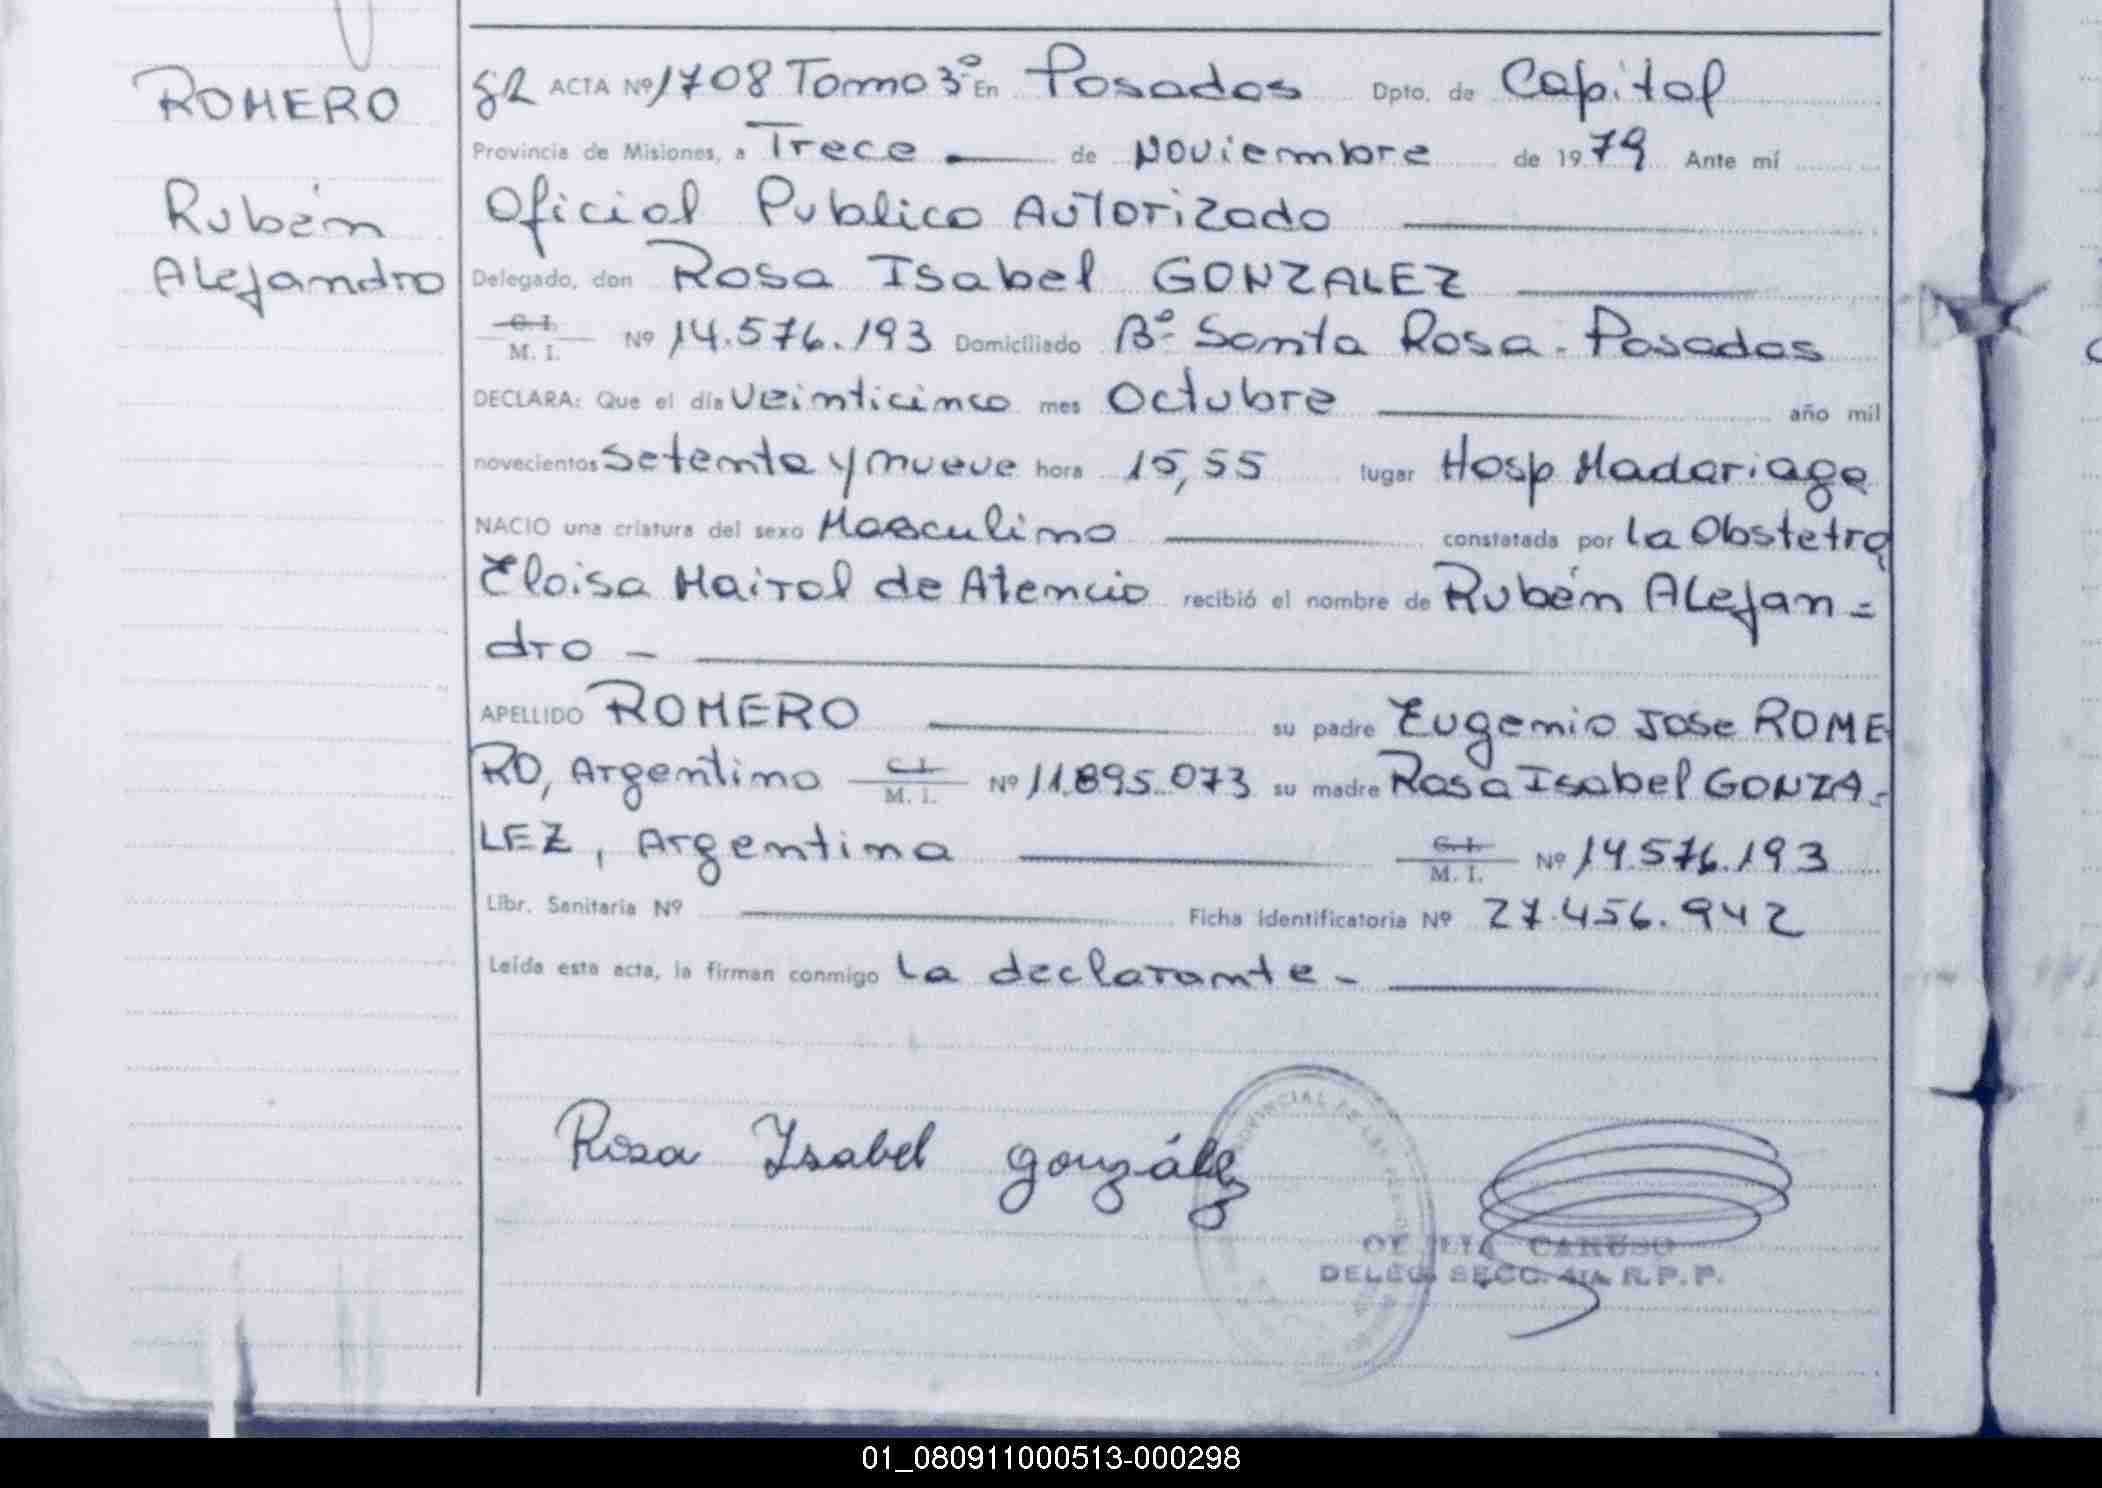 ROMERO
Rubén
Alejandro
ACTA Nº 1708 Tomo 3º En Posadas Dpto. de Capital
Provincia de Misiones, a Trece de Noviembre de 1979 Ante mí
Oficial Publico Autorizado
Delegado, don Rosa Isabel GONZALEZ
C. I.
M. I. Nº 14.576.193 Domiciliado Bº Santa Rosa - Posadas
DECLARA: Que el día Veinticinco mes Octubre año mil
novecientos setenta y nueve hora 15,55 lugar Hosp Madariaga
NACIO una criatura del sexo Masculino constatada por La Obstetra
Eloisa Mairal de Atencio recibió el nombre de Rubén Alejan=
dro -
APELLIDO ROMERO su padre Eugenio Jose ROME
RO, Argentino C. I. M. I. Nº 11.895.073 su madre Rosa Isabel GONZA-
LEZ, Argentina C. I. M. I. Nº 14.576.193
Libr. Sanitaria Nº Ficha identificatoria Nº 27.456.942
Leída esta acta, la firman conmigo La declarante -
Rosa Isabel González
CARUSO
DELEG. SECC. 4ta. R.P.P.
01_080911000513-000298